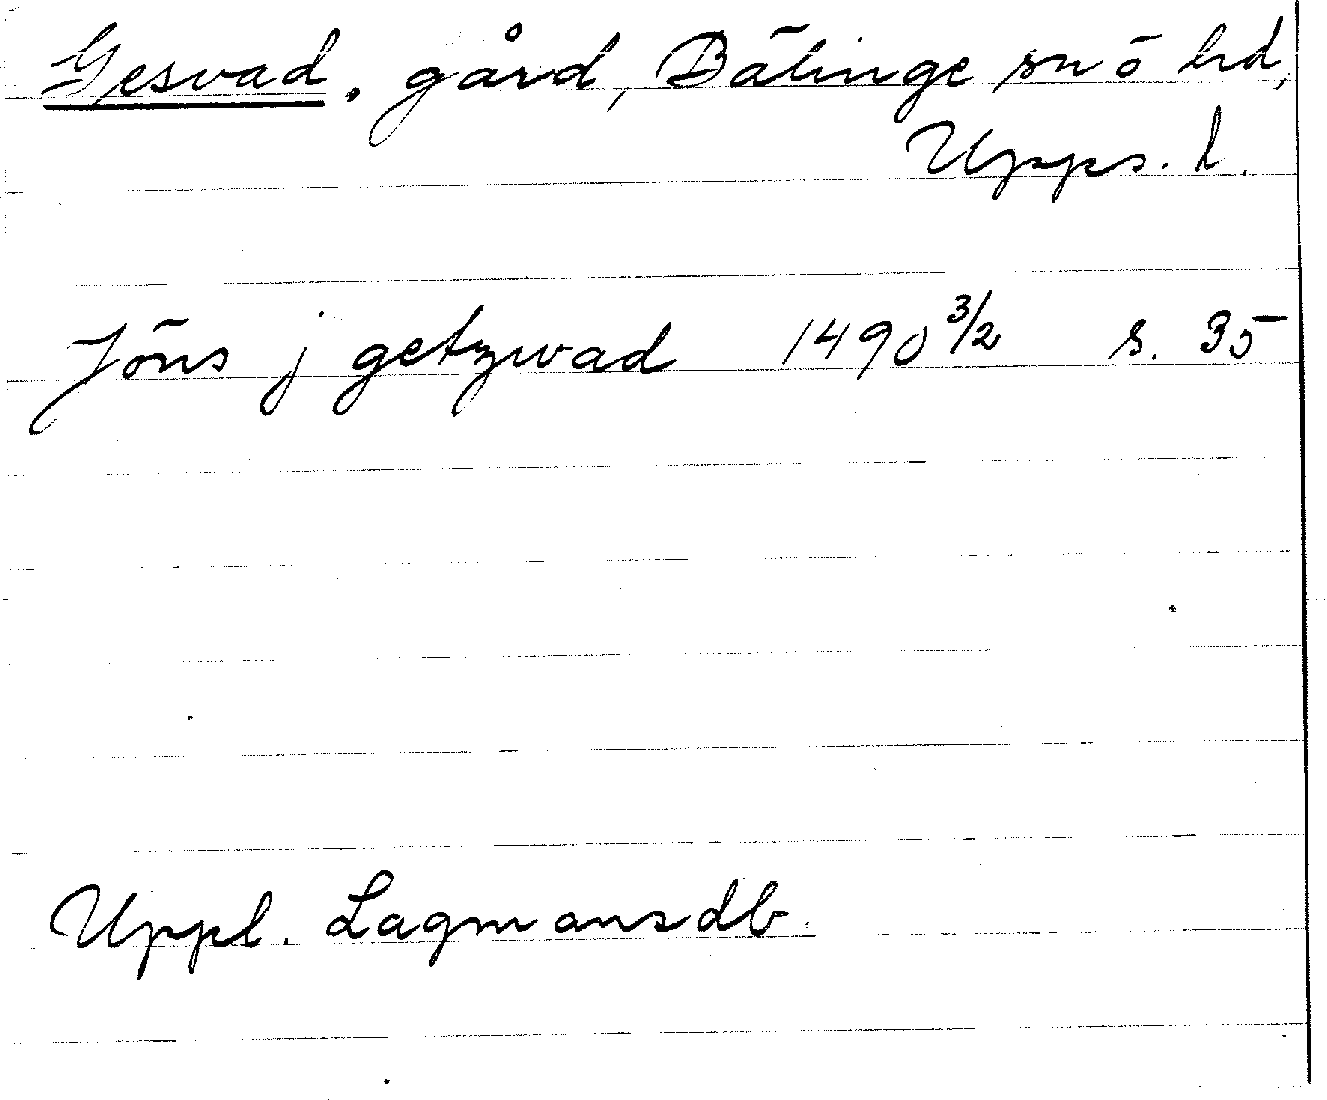 Gesvad, gård, Bälinge sn o hd,
Upps. l.
Jöns j getzwad 1490 3/2 s. 35
Uppl. Lagmansdb.